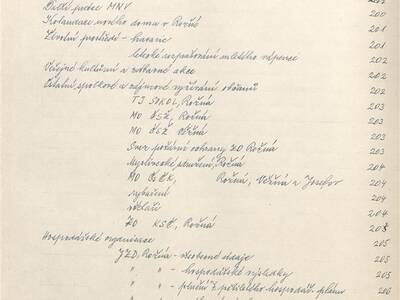 Další práce MNV 200
Kolaudace nového domu v Rožné 201
Životní prostředí - havarie 201
lehoké rozprašování mletého vápence 202
Veřejné kulturní a zábavné akce 202
Ostatní spolkové a zájmové využívání občanů 202
TJ SOKOL, Rožná 203
MO ČSŽ, Rožná 203
MO ČSŽ Věžná 203
Svaz požární ochrany ZO Rožná 203
Myslivecké sdružení, Rožná 204
MO ČSČK, Rožná, Věžná a Josefov 204
rybaření 204
204
ZO KSČ, Rožná 205
Hospodářské organizace 205
JZD, Rožná - všeobecné údaje 205
" " - hospodářské výsledky 205
" " - plnění 206